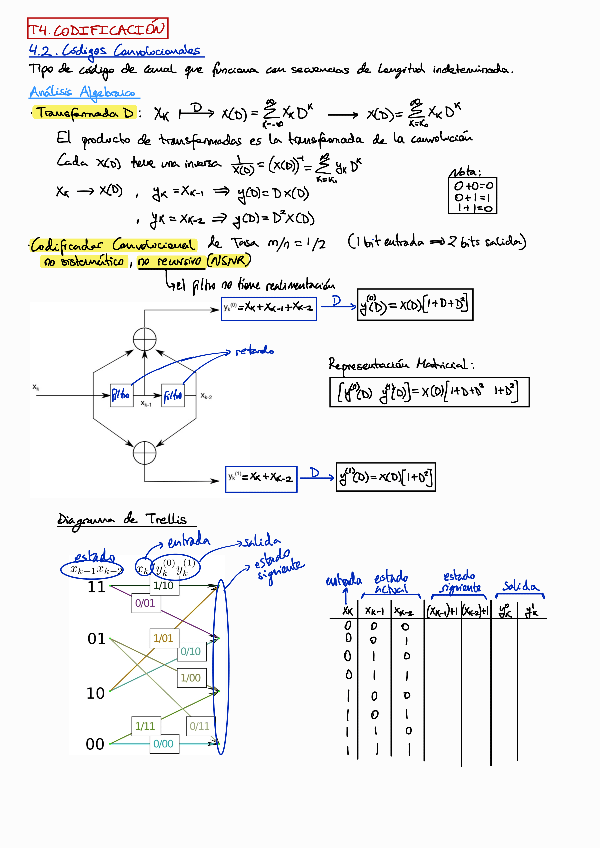 T4. CODIFICACIÓN
4.2. Códigos Convolucionales
Tipo de código de canal que funciona con secuencias de longitud indeterminada.
Análisis Algebraico
· Transformada D: X_K ⟼(D) X(D) = Σ_{K=-∞}^{∞} X_K D^K → X(D) = Σ_{K=K₀}^{∞} X_K D^K
El producto de transformadas es la transformada de la convolución
Cada X(D) tiene una inversa 1/X(D) = (X(D))^{-1} = Σ_{K=K₀}^{∞} y_K D^K
X_K → X(D) , y_K = X_{K-1} ⇒ y(D) = D X(D)
, y_K = X_{K-2} ⇒ y(D) = D² X(D)
Nota:
0+0=0
0+1=1
1+1=0
· Codificador Convolucional de Tasa m/n = 1/2 (1 bit entrada ⇒ 2 bits salida)
no sistemático, no recursivo (NSNR)
↳ el filtro no tiene realimentación
y_k^(0) = X_K + X_{K-1} + X_{K-2} →(D) y^(0)(D) = X(D)[1+D+D²]
retardo
x_k filtro x_{k-1} filtro x_{k-2}
Representación Matricial:
[y^(0)(D) y^(1)(D)] = X(D)[1+D+D² 1+D²]
y_k^(1) = X_K + X_{K-2} →(D) y^(1)(D) = X(D)[1+D²]
Diagrama de Trellis
estado entrada salida
x_{k-1}x_{k-2} x_k y_k^(0) y_k^(1) estado siguiente
11 1/10
0/01
01 1/01
0/10
1/00
10
1/11 0/11
00 0/00
entrada estado actual estado siguiente salida
X_K X_{K-1} X_{K-2} (X_{K-1})+1 (X_{K-2})+1 y_K^0 y_K^1
0 0 0
0 0 1
0 1 0
0 1 1
1 0 0
1 0 1
1 1 0
1 1 1